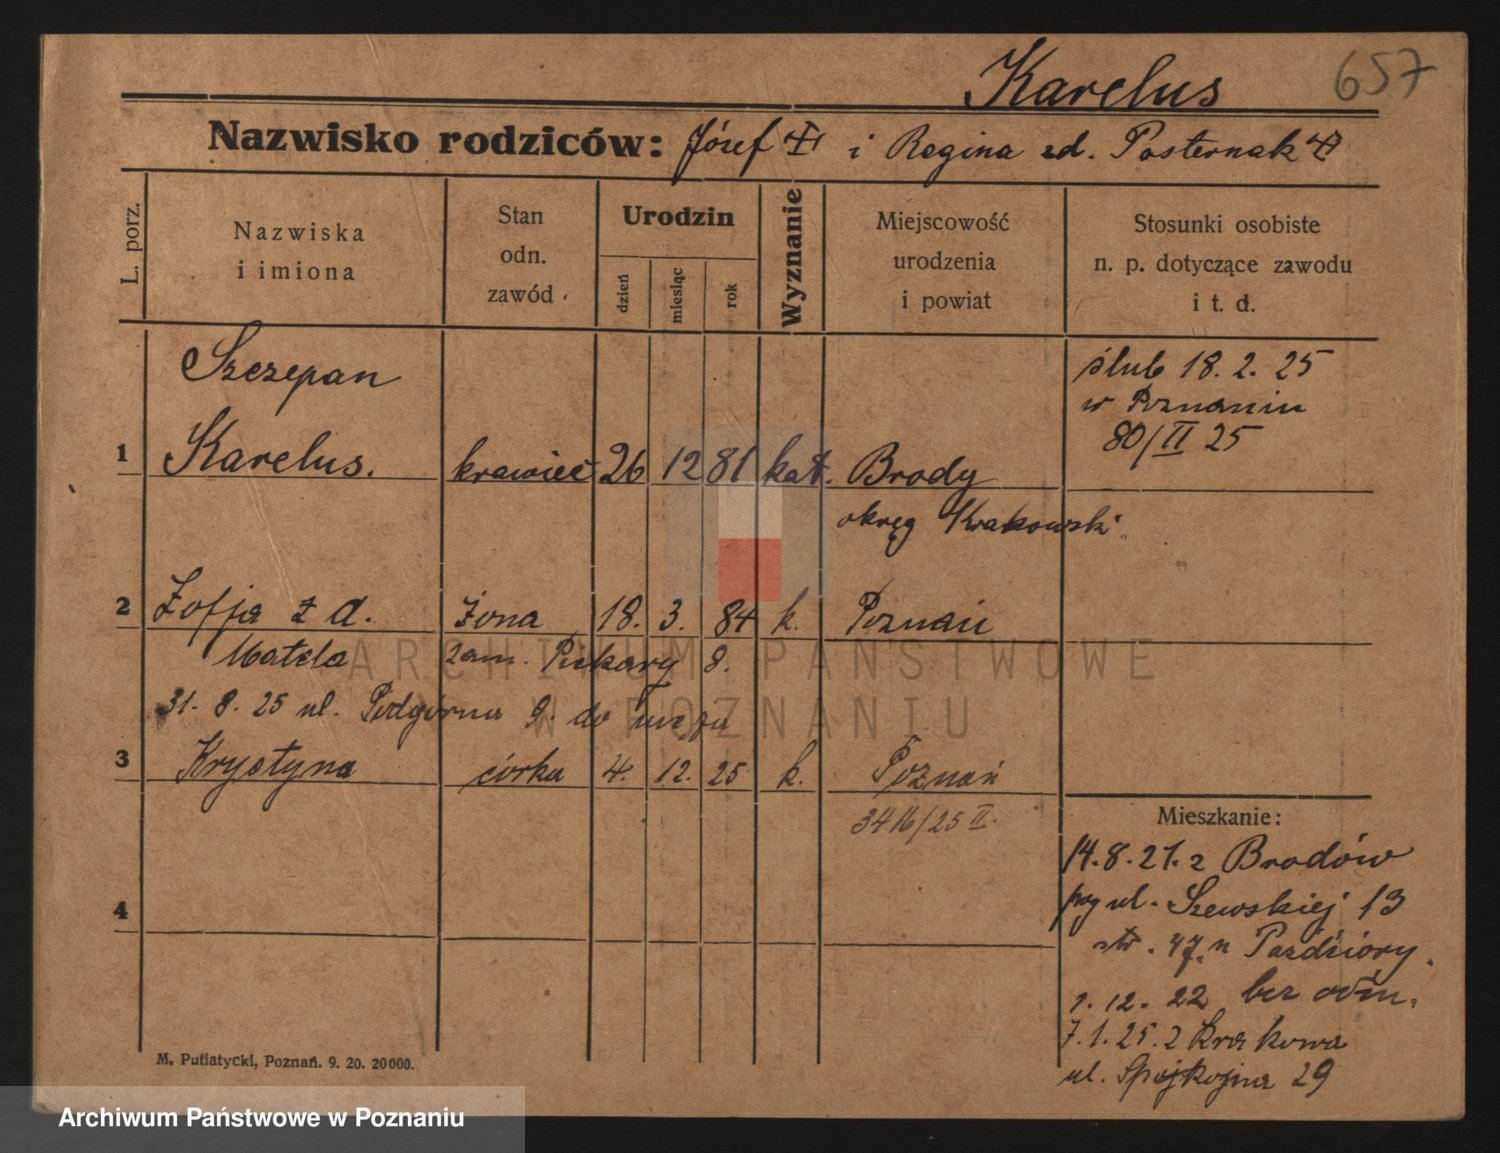 Karelus 657
Nazwisko rodziców: Józef i Regina zd. Pasternak
L. porz.
Nazwiska
i imiona
Stan
odn.
zawód
Urodzin
dzień
miesiąc
rok
Wyznanie
Miejscowość
urodzenia
i powiat
Stosunki osobiste
n. p. dotyczące zawodu
i t. d.
Szczepan
ślub 18. 2. 25
w Poznaniu
80/II 25
1 Karelus. krawiec 26 12 81 kat. Brody
okręg Krakowski
2 Zofja z d. żona 18. 3. 84 k. Poznań
Matela zam. Piekary 8.
31. 8. 25 ul. Podgórna 9. do męża
3 Krystyna córka 4. 12. 25 k. Poznań
3416/25 II.
4
Mieszkanie:
14. 8. 21. z Brodów
przy ul. Szewskiej 13
str. 47. u Paździory.
1. 12. 22 bez odm.
7. 1. 25. z Krakowa
ul. Spokojna 29
M. Putiatycki, Poznań. 9. 20. 20000.
ARCHIWUM PAŃSTWOWE
W POZNANIU
Archiwum Państwowe w Poznaniu